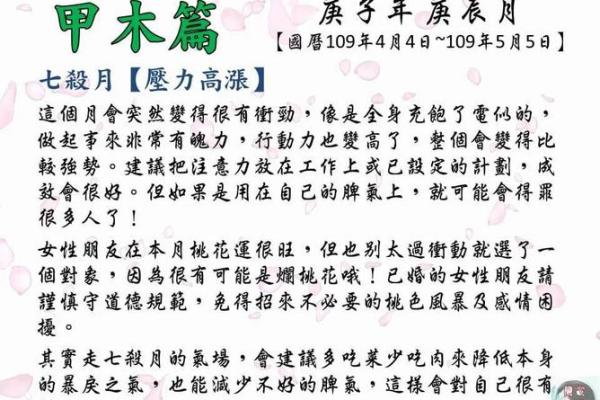 甲木篇
庚子年 庚辰月
【國曆109年4月4日~109年5月5日】
七殺月【壓力高漲】
這個月會突然變得很有衝勁，像是全身充飽了電似的，
做起事來非常有魄力，行動力也變高了，整個會變得比
較強勢。建議把注意力放在工作上或已設定的計劃，成
效會很好。但如果是用在自己的脾氣上，就可能會得罪
很多人了！
女性朋友在本月桃花運很旺，但也別太過衝動就選了一
個對象，因為很有可能是爛桃花哦！已婚的女性朋友請
謹慎守道德規範，免得招來不必要的桃色風暴及感情困
擾。
其實走七殺月的氣場，會建議多吃菜少吃肉來降低本身
的暴戾之氣，也能減少不好的脾氣，這樣會對自己很有